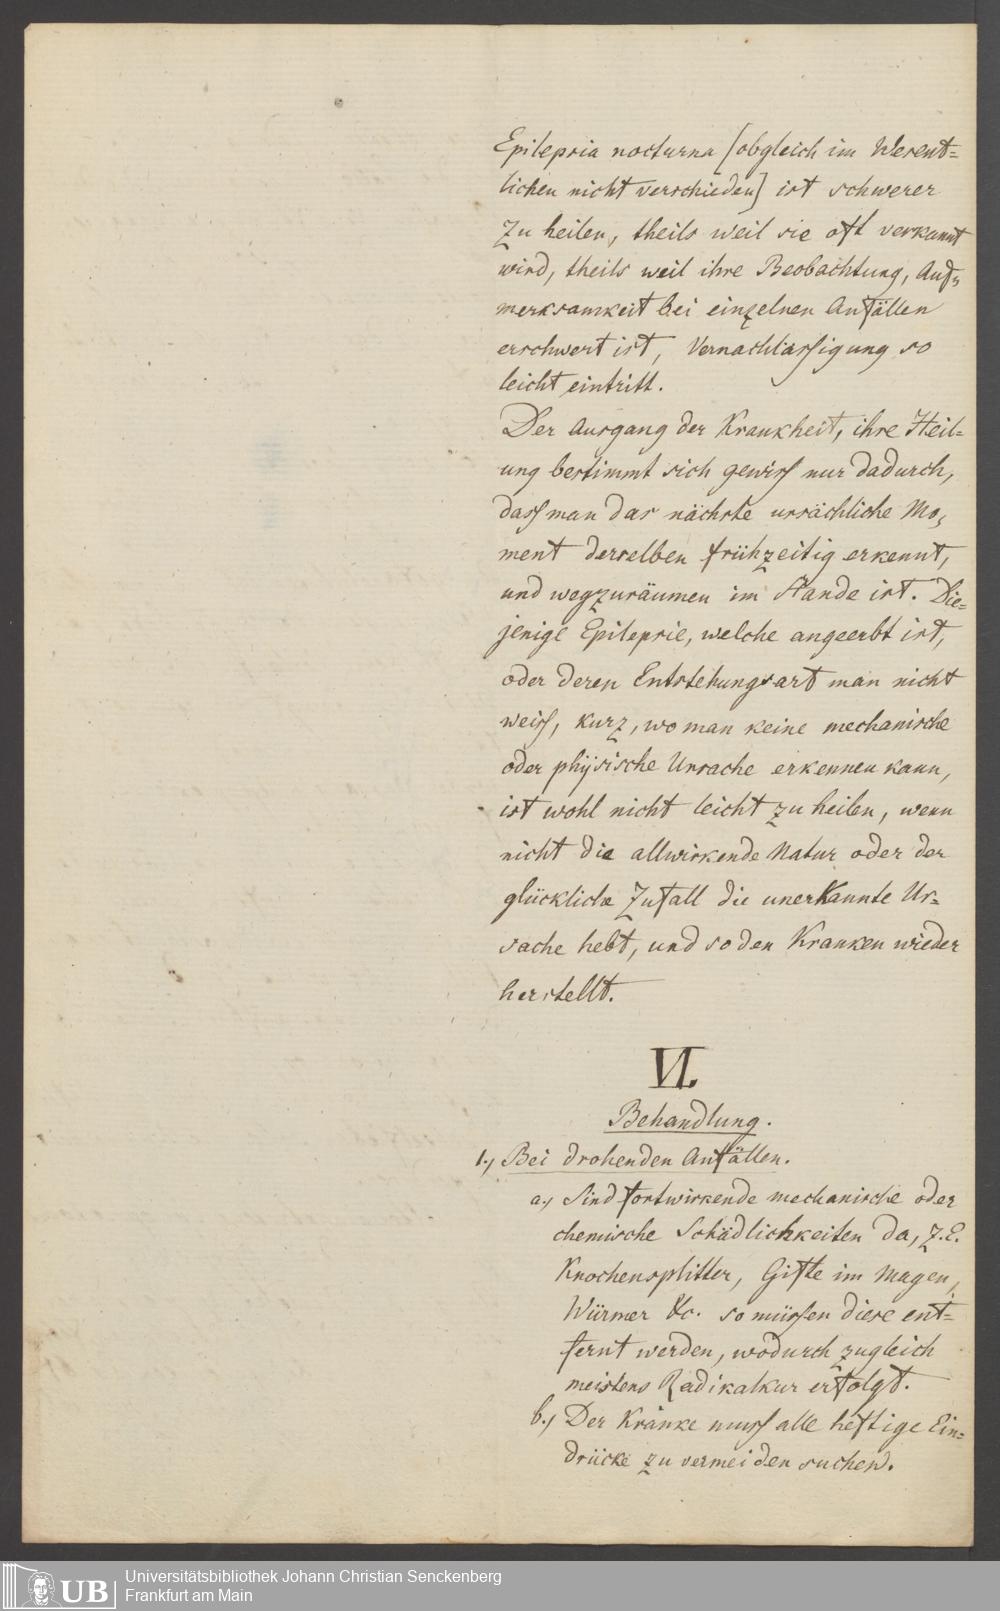 Epilepsia nocturna [obgleich im Wesent=
lichen nicht verschieden] ist schwerer
zu heilen, theils weil sie oft verkannt
wird, theils weil ihre Beobachtung, Auf=
merksamkeit bei einzelnen Anfällen
erschwert ist, Vernachlässigung so
leicht eintritt.
Der Ausgang der Krankheit, ihre Heil=
ung bestimmt sich gewiss nur dadurch,
dass man das nächste ursächliche Mo=
ment derselben frühzeitig erkennt,
und wegzuräumen im Stande ist. Die=
jenige Epilepsie, welche angeerbt ist,
oder deren Entstehungsart man nicht
weiss, kurz, wo man keine mechanische
oder physische Ursache erkennen kann,
ist wohl nicht leicht zu heilen, wenn
nicht die allwirkende Natur oder der
glückliche Zufall die unerkannte Ur=
sache hebt, und so den Kranken wieder
herstellt.
VI.
Behandlung.
1., Bei drohenden Anfällen.
a., Sind fortwirkende mechanische oder
chemische Schädlichkeiten da, z.E.
Knochensplitter, Gifte im Magen,
Würmer &c. so müssen diese ent=
fernt werden, wodurch zugleich
meistens Radikalkur erfolgt.
b., Der Kranke muss alle heftige Ein=
drücke zu vermeiden suchen.
UB
Universitätsbibliothek Johann Christian Senckenberg
Frankfurt am Main